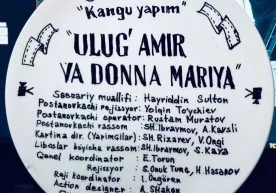 "Kangu yapım"
"ULUG' AMIR
VA DONNA MARIYA"
Ssenariy muallifi: Hayriddin Sulton
Postanovkachi rejissyor: Yolqin To'ychiev
Postanovkachi operator: Rustam Muratov
Postanovkachi rassom: SH. Ibraymov, A. Kavsli
Kartina dir. (Yapimcilar) SH. Rizayev, V. Öngi
Liboslar büyicha rassom: SH. Ibraymov, S. Kaya
Genel koordinator: E. Torun
Rejissyor: S. Onuk Tunç, H. Hasanov
Reji koordinator: I. Üngören
Action designer: A. Shakov